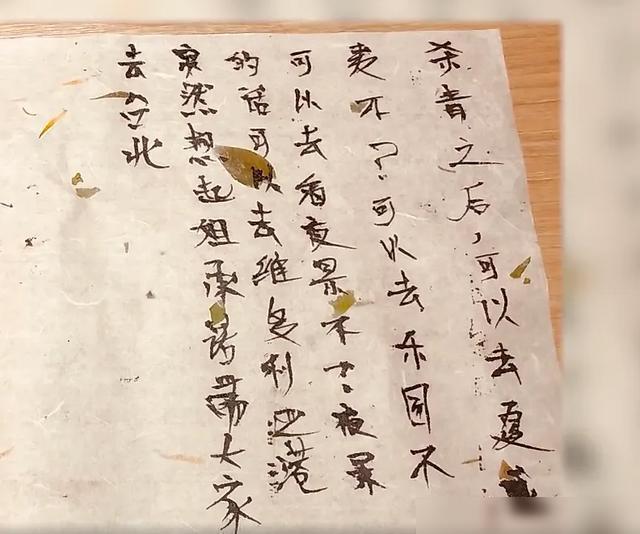 杀青之后，可以去夏
夷不？可以去乐园不
可以去看夜景不？夜景
的话可以去维多利亚港
突然想起姐承诺带大家
去台北